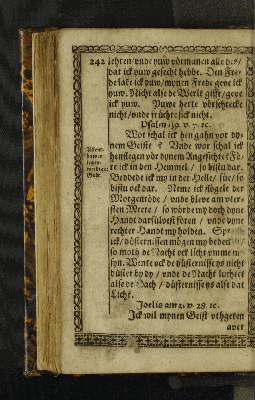 242 lehren/ vnde yuw vörmanen alle des/
dat ick yuw gesecht hebbe. Den Fre-
de late ick yuw/ mynen Frede geve ick
yuw. Nicht alse de Werlt gifft/ geve
ick yuw. Yuwe herte vörschrecke
nicht/ vnde früchte sick nicht.
Psalm 139. v. 7. ꝛc.
Wor schal ick hen gahn vor dy-
nem Geiste? Vnde wor schal ick
henflegen vör dynem Angesichte? Fö-
re ick in den Hemmel/ so bistu dar.
Beddede ick my in der Helle/ süe/ so
bistu ock dar. Neme ick flögele der
Morgenröde/ vnde bleve am vter-
sten Meere/ so wörde my doch dyne
Handt darsülvest fören/ vnde dyne
rechter Handt my holden. Spreke
ick/ düsternissen mögen my bedecken/
so moth de Nacht ock licht vmme my
syn. Wente ock de düsternisse ys nicht
düster by dy/ vnde de Nacht lüchtet
alse de Dach/ düsternisse ys alse dat
Licht.
Joelis am 2. v. 28. ꝛc.
Ick wil mynen Geist vthgeten
aver